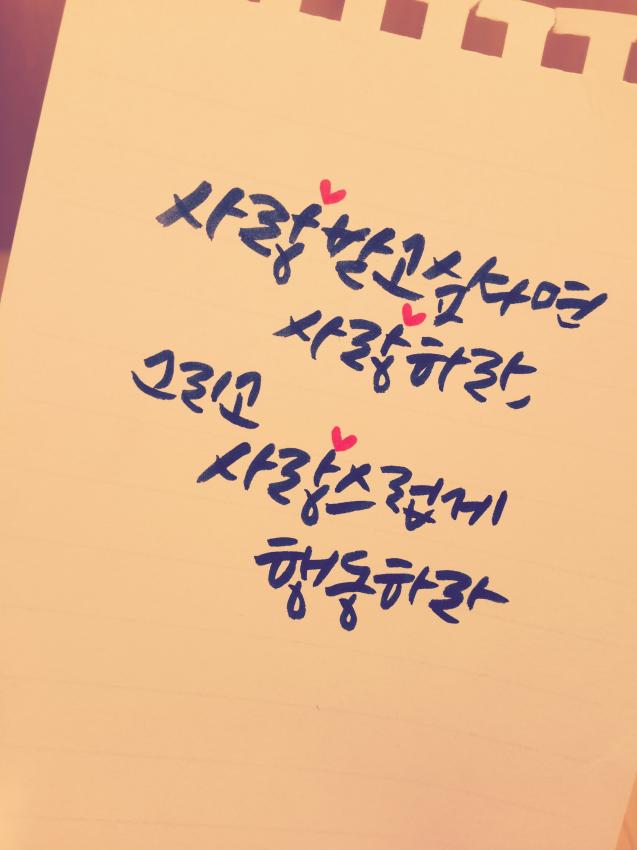 사랑받고싶다면
사랑하라,
그리고
사랑스럽게
행동하라